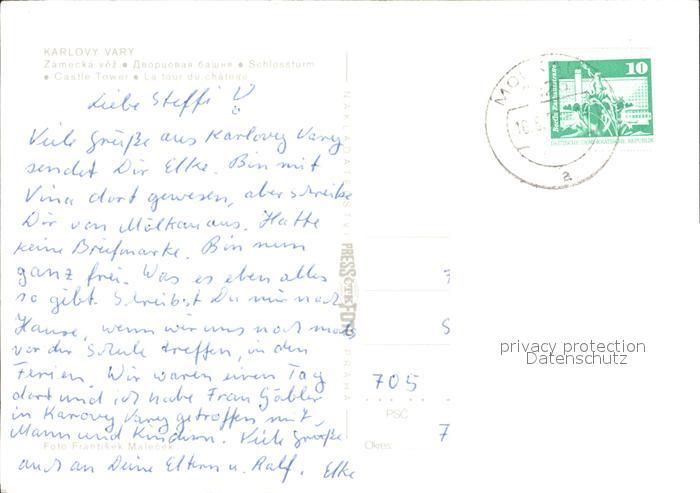 KARLOVY VARY
Zámecká věž • Дворцовая башня • Schlossturm
• Castle Tower • La tour du château
Liebe Steffi!
Viele Grüße aus Karlovy Vary
sendet Dir Elke. Bin mit
Vina dort gewesen, aber schreibe
Dir von Mölkau aus. Hatte
keine Briefmarke. Bin nun
ganz frei. Was es eben alles
so gibt. Schreibst Du mir nach
Hause, wenn wir uns noch mal
vor der Schule treffen, in den
Ferien. Wir waren einen Tag
dort und ich habe Frau Gäbler
in Karovey Varey getroffen mit
Mann und Kindern. Viele Grüße
auch an Deine Eltern u. Ralf. Elke
Foto František Maleček
NAKLADATELSTVÍ
PRESSFOTO
PRAHA
10
Berlin, Rathausstrasse
DEUTSCHE DEMOKRATISCHE REPUBLIK
a
705
PSČ
7
Okres:
privacy protection
Datenschutz